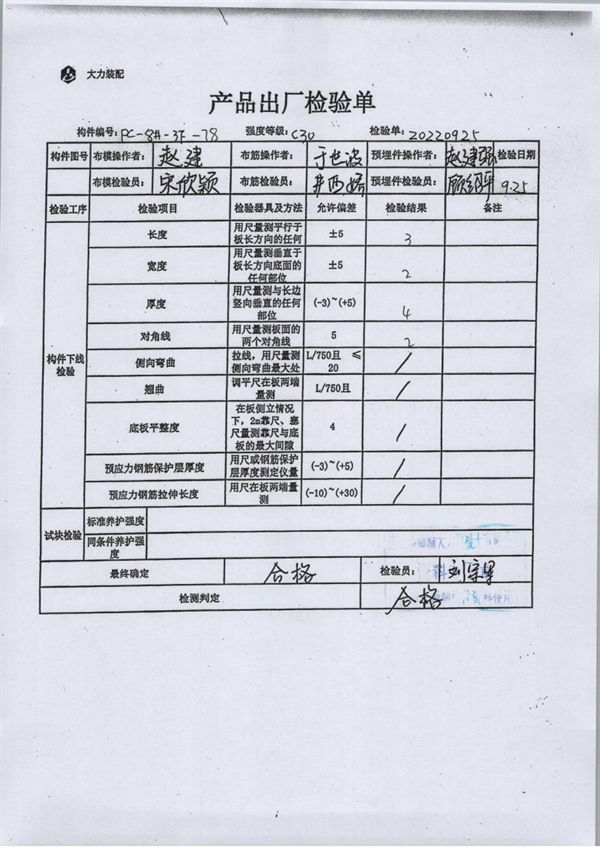 大力装配
产品出厂检验单
构件编号: PC-8#-3F-78 强度等级: C30 检验单: 20220925
构件图号 布模操作者: 赵建 布筋操作者: 于世波 预埋件操作者: 赵建强 检验日期
布模检验员: 宋欣颖 布筋检验员: 预埋件检验员: 9.25
检验工序 检验项目 检验器具及方法 允许偏差 检验结果 备注
构件下线检验
长度 用尺量测平行于板长方向的任何 ±5 3
宽度 用尺量测垂直于板长方向底面的任何部位 ±5 2
厚度 用尺量测与长边竖向垂直的任何部位 (-3)~(+5) 4
对角线 用尺量测板面的两个对角线 5 2
侧向弯曲 拉线，用尺量测侧向弯曲最大处 L/750且 ≤20 /
翘曲 调平尺在板两端量测 L/750且 /
底板平整度 在板侧立情况下，2m靠尺、塞尺量测靠尺与底板的最大间隙 4 /
预应力钢筋保护层厚度 用尺或钢筋保护层厚度测定仪量 (-3)~(+5) /
预应力钢筋拉伸长度 用尺在板两端量测 (-10)~(+30) /
试块检验 标准养护强度
同条件养护强度
最终确定 合格 检验员:
检测判定 合格